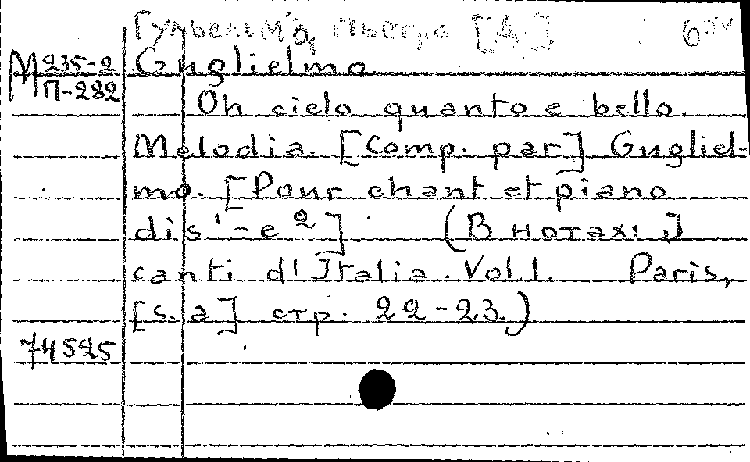 [А.]
М 235-2 Guglielmo
П-282
Oh cielo quanto e bello.
Melodia. [Comp. par] Gugliel-
mo. [Pour chant et piano
dis'-e²] (В нотах: J
canti d'Italia. Vol.1. Paris,
[s.a] стр. 22-23.)
74525